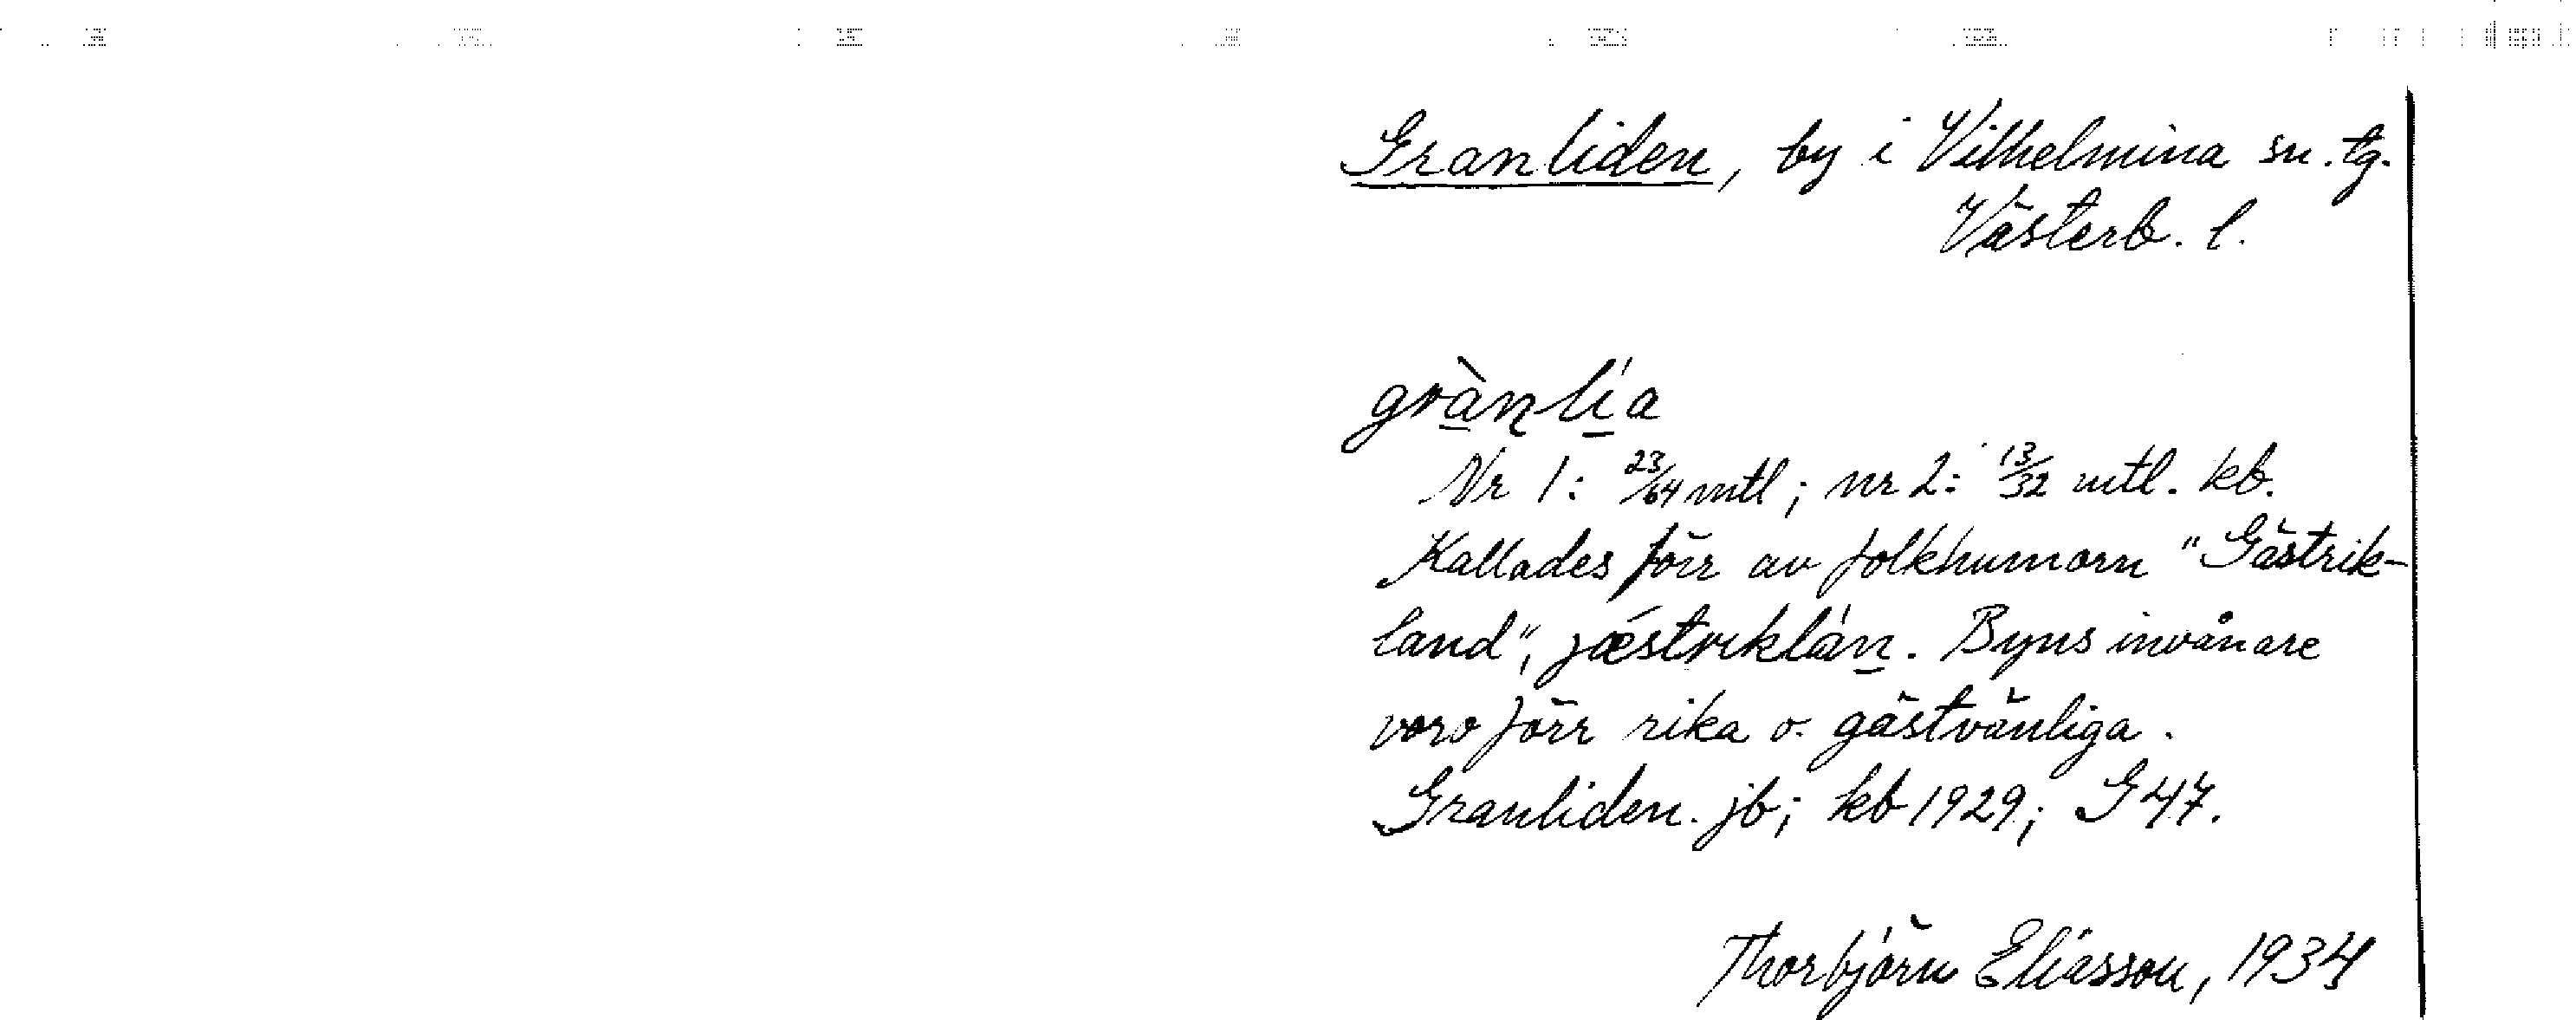 Granliden, by i Vilhelmina sn. tg.
Västerb. l.
gràn̠lí̠a
Nr 1: 23/64 mtl; nr 2: 13/32 mtl. kb.
Kallades förr av folkhumorn "Gästrik-
land", jæ´strıklán̠. Byns invånare
voro förr rika o. gästvänliga.
Granliden. jb; kb 1929; G 47.
Thorbjörn Eliasson, 1934